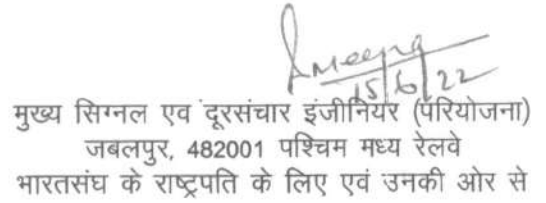 Ameena
15/6/22
मुख्य सिग्नल एव दूरसंचार इंजीनियर (परियोजना)
जबलपुर, 482001 पश्चिम मध्य रेलवे
भारतसंघ के राष्ट्रपति के लिए एवं उनकी ओर से